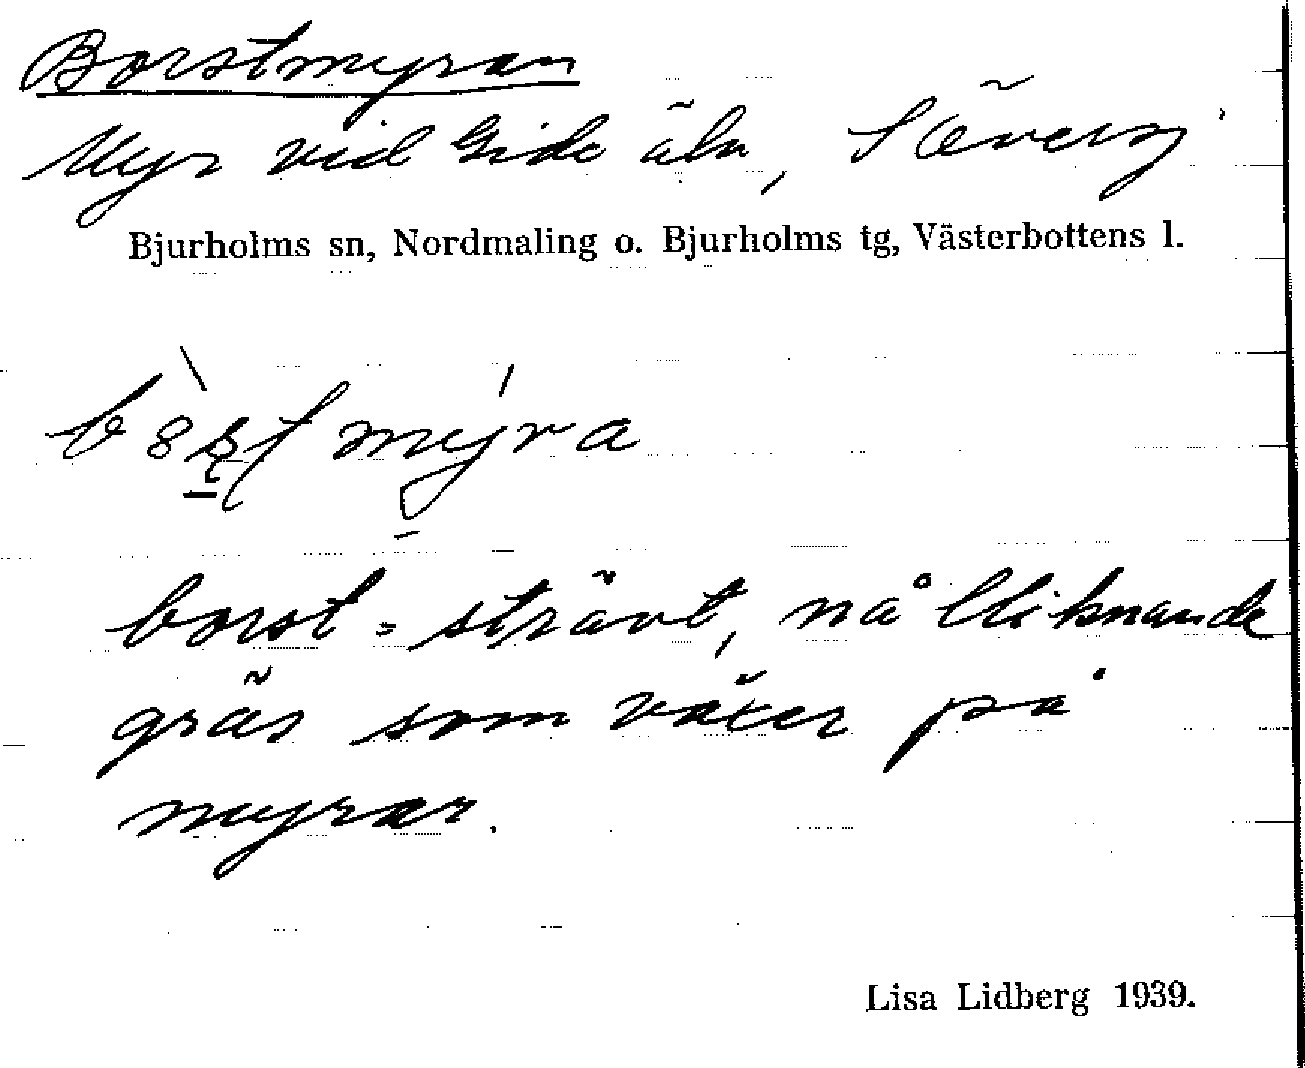 Borstmyran
Myr vid Gide älv, Säversj
Bjurholms sn, Nordmaling o. Bjurholms tg, Västerbottens l.
borst = strävt, nålliknande
gräs som växer på
myrar.
Lisa Lidberg 1939.